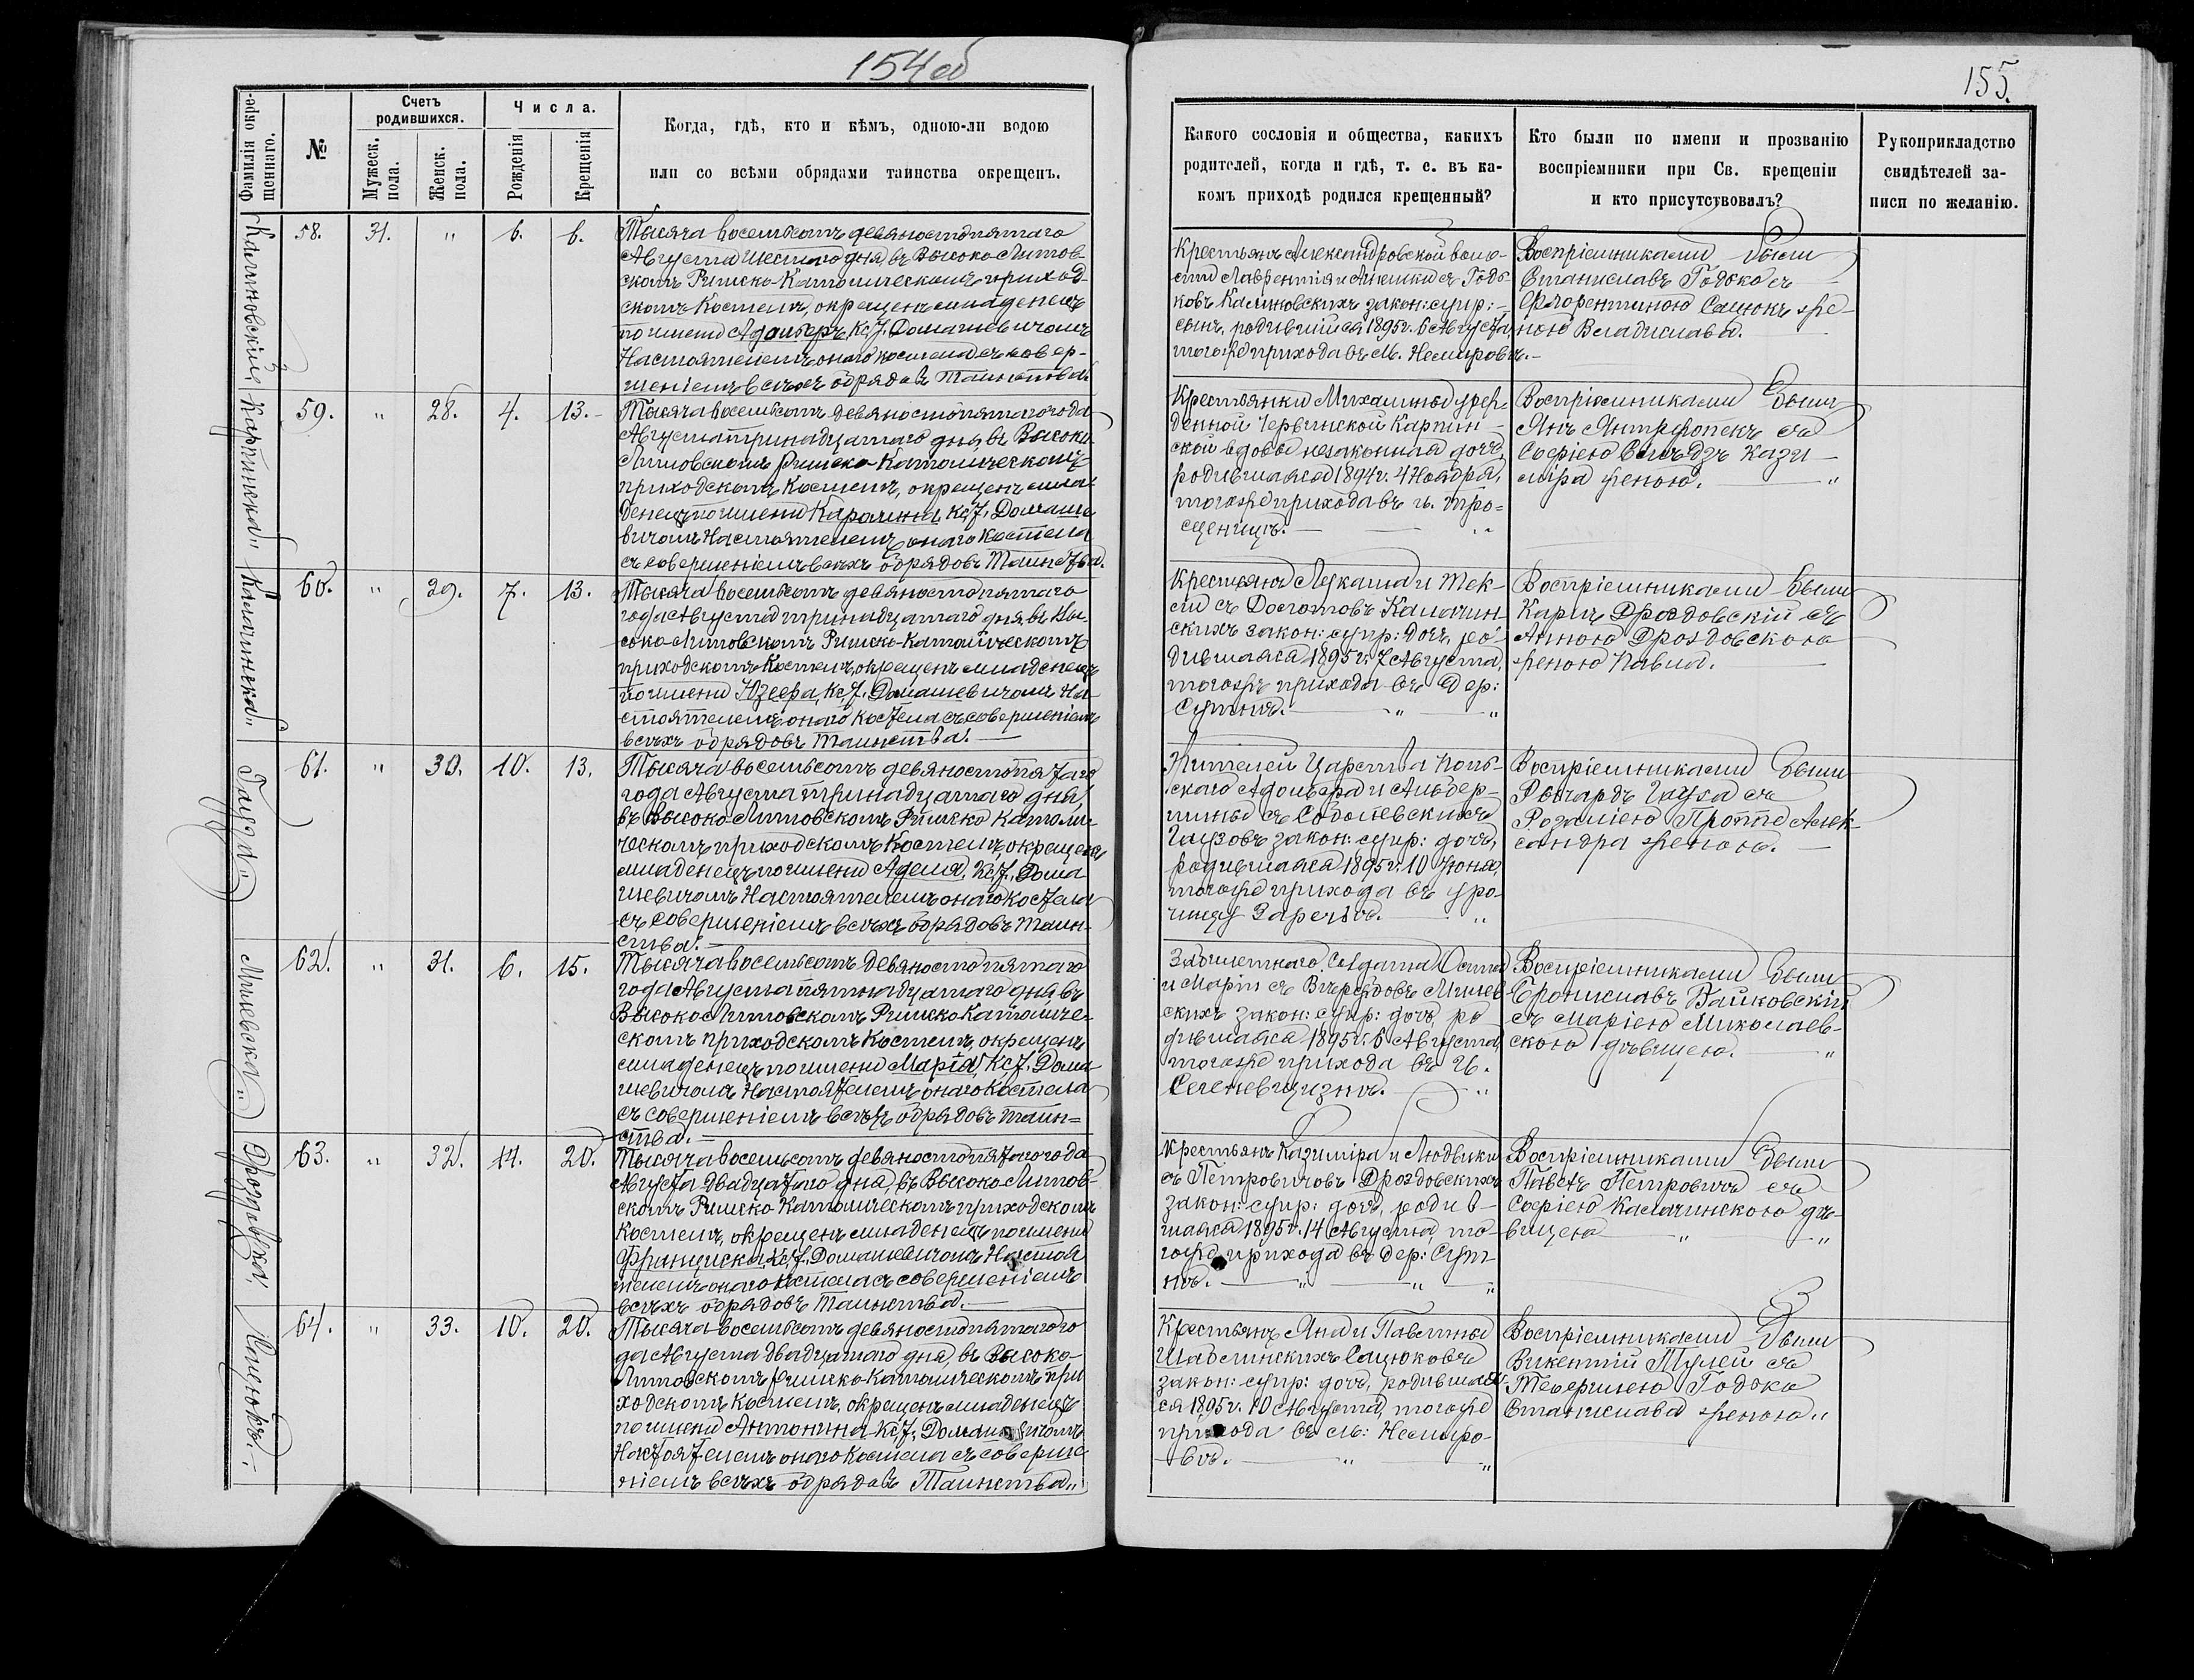 154 об
155.
Фамилія окре-
щеннаго.
№
Счетъ
родившихся.
Мужеск.
пола.
Женск.
пола.
Числа.
Рожденія
Крещенія
Когда, гдѣ, кто и кѣмъ, одною-ли водою
или со всѣми обрядами таинства окрещенъ.
Какого сословія и общества, какихъ
родителей, когда и гдѣ, т. е. въ ка-
комъ приходѣ родился крещенный?
Кто были по имени и прозванію
воспріемники при Св. крещеніи
и кто присутствовалъ?
Рукоприкладство
свидѣтелей за-
писи по желанію.
Калиновскій
58. 31. " 6. 6.
Тысяча восемьсотъ девяностопятаго
Августа шестаго дня, въ Высоко-Литов-
скомъ Римско-Католическомъ приход-
скомъ Костелѣ, окрещенъ младенецъ
по имени Адольфъ, Кс. І. Домашевичомъ
Настоятелемъ онаго костела съ совер-
шеніемъ всѣхъ обрядовъ Таинства.
Крестьянъ Александровской воло-
сти Лаврентія и Анели съ Годо-
ковъ Калиновскихъ закон: супр: –
сынъ, родившійся 1895 г. 6 Августа,
тогоже прихода въ М. Немировѣ. –
Воспріемниками были
Станиславъ Годоко съ
Флорентиною Сацюкъ же-
ною Владислава.
Карпинска"
59. " 28. 4. 13. –
Тысяча восемьсотъ девяностопятаго года
Августа тринадцатаго дня, въ Высоко-
Литовскомъ Римско-Католическомъ
приходскомъ Костелѣ, окрещенъ мла-
денецъ по имени Каролина, Кс. І. Домаше
вичомъ Настоятелемъ онаго Костела
съ совершеніемъ всѣхъ обрядовъ Таинства.
Крестьянки Михалины урож-
денной Червинской Карпин-
ской вдовы незаконная дочь,
родившаяся 1894 г. 4 Ноября,
тогоже прихода въ и. Тро-
сценицѣ. – "
Воспріемниками были
Янъ Антрфопекъ съ
Софіею Казі-
міра женою. – "
Калачинска"
60. " 29. 7. 13.
Тысяча восемьсотъ девяностопятаго
года Августа тринадцатаго дня, въ Вы-
соко-Литовскомъ Римско-Католическомъ
приходскомъ Костелѣ, окрещенъ младенецъ
по имени Юзефа, Кс. І. Домашевичомъ На-
стоятелемъ онаго Костела съ совершеніемъ
всѣхъ обрядовъ Таинства. –
Крестьянъ Лукаша и Тек-
ли съ Долотовъ Калачин-
скихъ закон: супр: дочь, ро-
дившаяся 1895 г. 7 Августа,
тогожъ прихода въ дер:
Сутнѣ. – " – "
Воспріемниками были
Карпъ Дроздовскій съ
Анною Дроздовскою
женою Павла. –
Гаузъ"
61. " 30. 10. 13.
Тысяча восемьсотъ девяностопятаго
года Августа тринадцатаго дня,
въ Высоко-Литовскомъ Римско Католи-
ческомъ приходскомъ Костелѣ, окрещенъ
младенецъ по имени Аделя, Кс. І. Дома
шевичомъ Настоятелемъ онаго Костела
съ совершеніемъ всѣхъ обрядовъ Таин-
ства. –
Жителей Царства Поль-
скаго Адольфа и Альбер-
тины съ Соболевскихъ
Гаузовъ закон: супр: дочь,
родившаяся 1895 г. 10 Іюня,
тогоже прихода въ уро-
чищу Заречье. – "
Воспріемниками были
Рычардъ Гауза съ
Розаліею Протте Алек-
сандра женою. –
Милевска"
62. " 31. 6. 15.
Тысяча восемьсотъ девяностопятаго
года Августа пятнадцатаго дня въ
Высоко Литовскомъ Римско Католиче-
скомъ приходскомъ Костелѣ, окрещенъ
младенецъ по имени Марія, Кс. І. Дома
шевичомъ Настоятелемъ онаго Костела
съ совершеніемъ всѣхъ обрядовъ Таин=
ства. –
Забилетнаго Солдата Осипа
и Маріи съ Милев-
скихъ закон: супр: дочь, ро
дившаяся 1895 г. 6 Августа,
тогоже прихода въ И.
Селеневщизнѣ. – "
Воспріемниками были
Брониславъ Вайковскій
съ Маріею Миколаев-
скою дѣвицею. – "
Дроздовска"
63. " 32. 14. 20.
Тысяча восемьсотъ девяностопятаго года
Августа двадцатаго дня, въ Высоко Литов-
скомъ Римско Католическомъ приходскомъ
Костелѣ, окрещенъ младенецъ по имени
Францишка, Кс. І. Домашевичомъ Настоя
телемъ онаго Костела съ совершеніемъ
всѣхъ обрядовъ Таинства. –
Крестьянъ Казиміра и Людвики
съ Петровичовъ Дроздовскихъ
закон: супр: дочь, родив-
шаяся 1895 г. 14 Августа, то-
гоже прихода въ дер: Сут-
нѣ. – " – " – "
Воспріемниками были
Павелъ Петровичъ съ
Софіею Калачинскою дѣ-
вицею – " – "
Сацюкъ"
64. " 33. 10. 20.
Тысяча восемьсотъ девяностопятаго го
да Августа двадцатаго дня, въ Высоко-
Литовскомъ Римско-Католическомъ при
ходскомъ Костелѣ, окрещенъ младенецъ
по имени Антонина Кс. І. Домашевичомъ
Настоятелемъ онаго Костела съ соверше
ніемъ всѣхъ обрядовъ Таинства"
Крестьянъ Яна и Павлины
Шаблинскихъ Сацюковъ
закон: супр: дочь, родившая-
ся 1895 г. 10 Августа, тогоже
прихода въ м: Немиро-
вѣ. – " – "
Воспріемниками были
Викентій Тулей съ
Теофилею Годоко
Станислава женою"